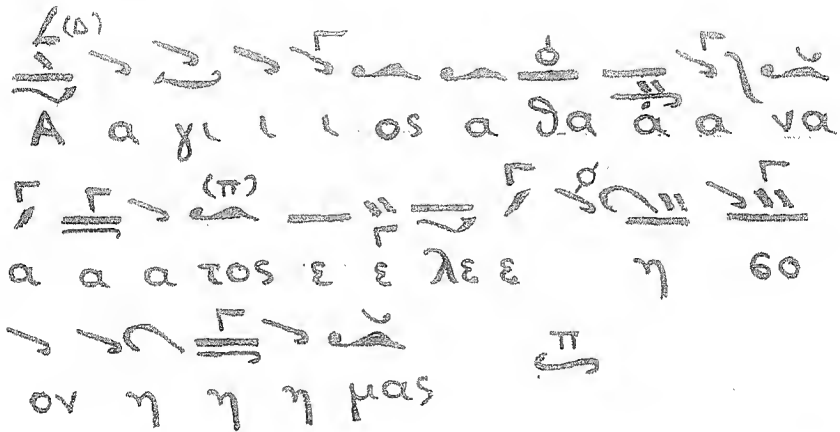 (Δ)
Α α γι ι ι ος α θα ά α να
(π)
α α α τος ε ε λε ε η σο
ον η η η μας π